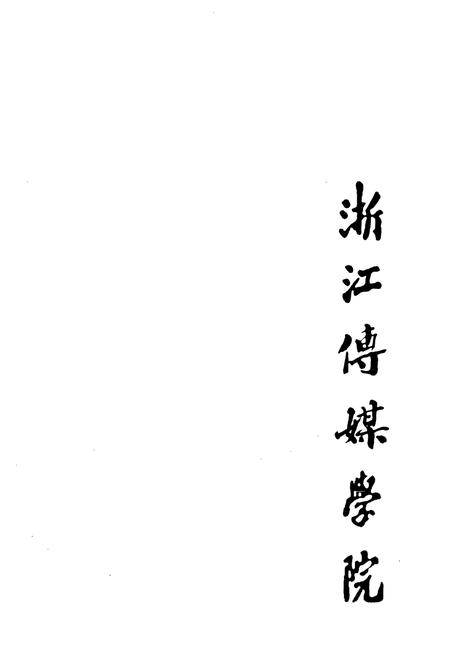 浙江傳媒學院